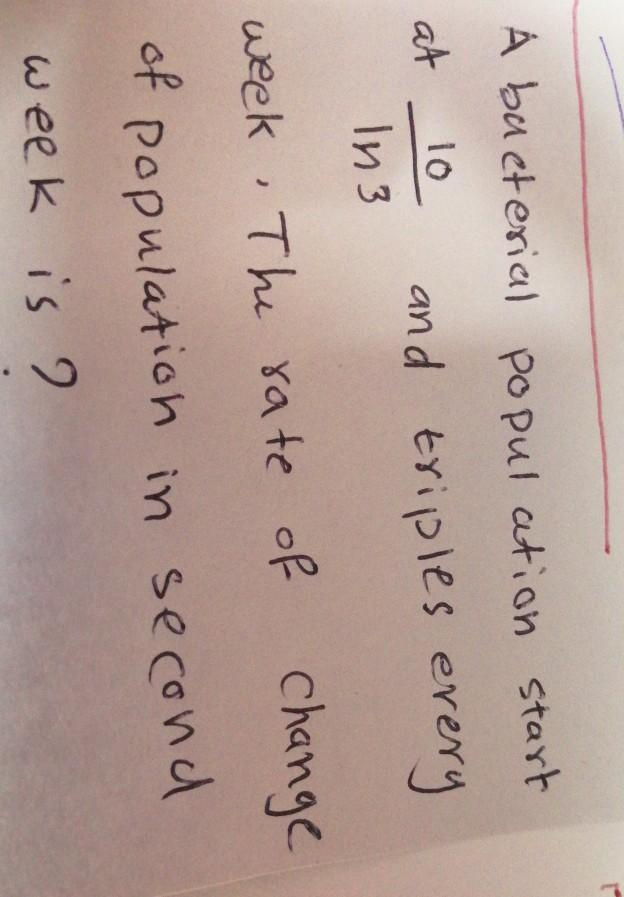 A bacterial population start
at 10/ln 3 and triples every
week, The rate of change
of population in second
week is ?